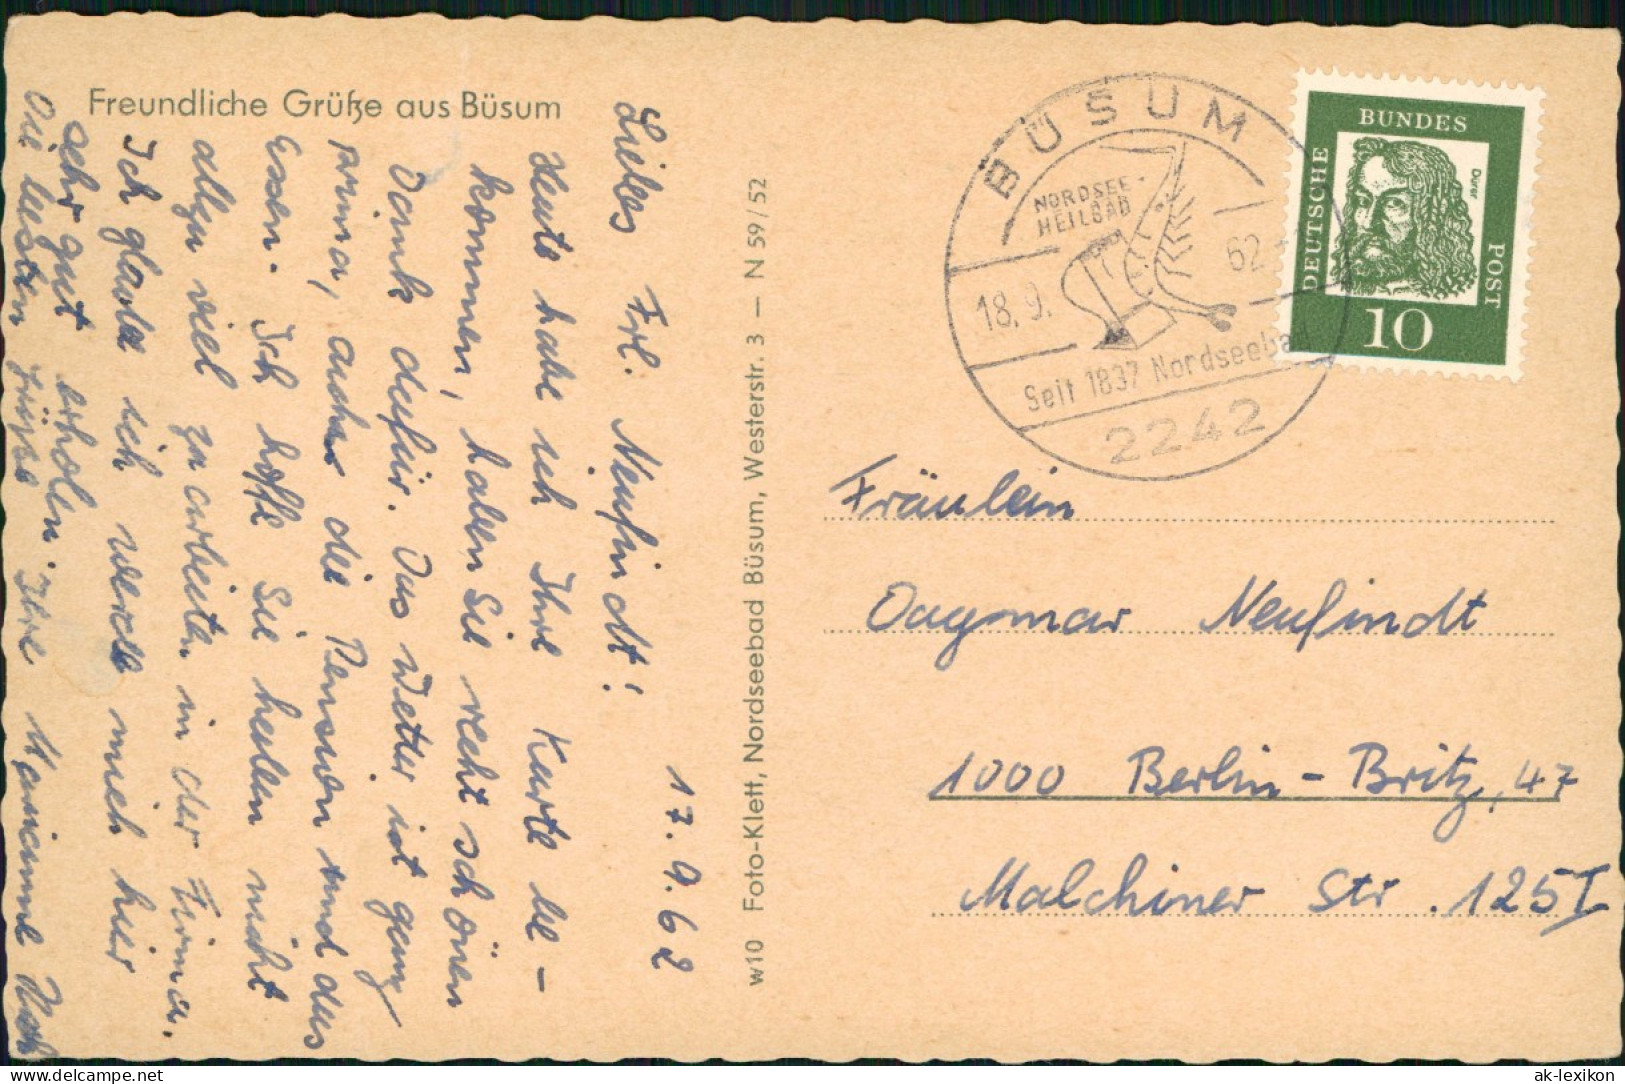 Freundliche Grüße aus Büsum
17.9.62
Liebes Frl. Neufindt!
Heute habe ich Ihre Karte be-
kommen, haben Sie recht schönen
Dank dafür. Das Wetter ist ganz
prima, auch die Pension und das
Essen. Ich hoffe Sie haben nicht
allzu viel zu arbeiten in der Firma.
Ich glaube ich werde mich hier
sehr gut erholen.
Die besten Grüße Ihre Marianne
w10 Foto-Klett, Nordseebad Büsum, Westerstr. 3 — N 59/52
BÜSUM
NORDSEE-
HEILBAD
18.9.
62
Seit 1837 Nordseebad
2242
DEUTSCHE
BUNDES
POST
Dürer
10
Fräulein
Dagmar Neufindt
1000 Berlin-Britz, 47
Malchiner Str. 125 I
delcampe.net
ak-lexikon